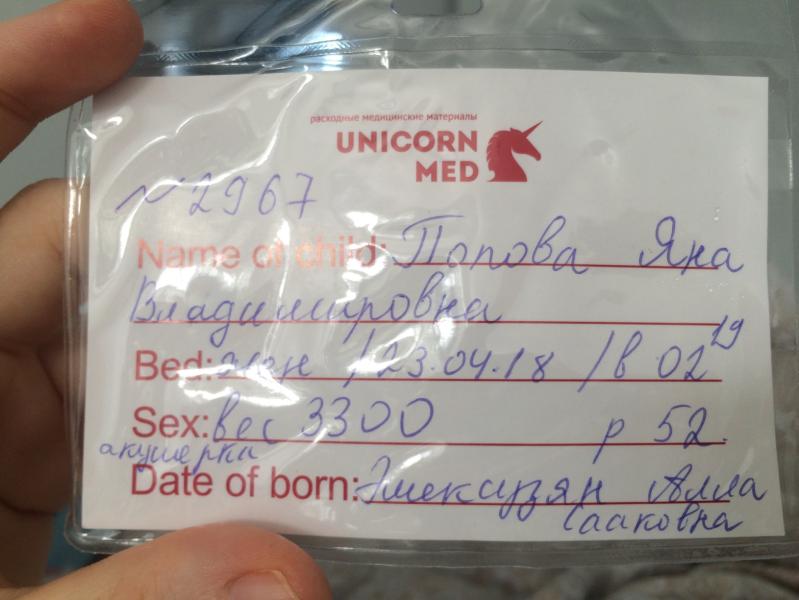 расходные медицинские материалы
UNICORN
MED
№2967
Name of child: Попова Яна
Владимировна
Bed: жен /23.04.18 /в 02 19
Sex: вес 3300 р 52.
акушерка
Date of born: Алла
Сааковна